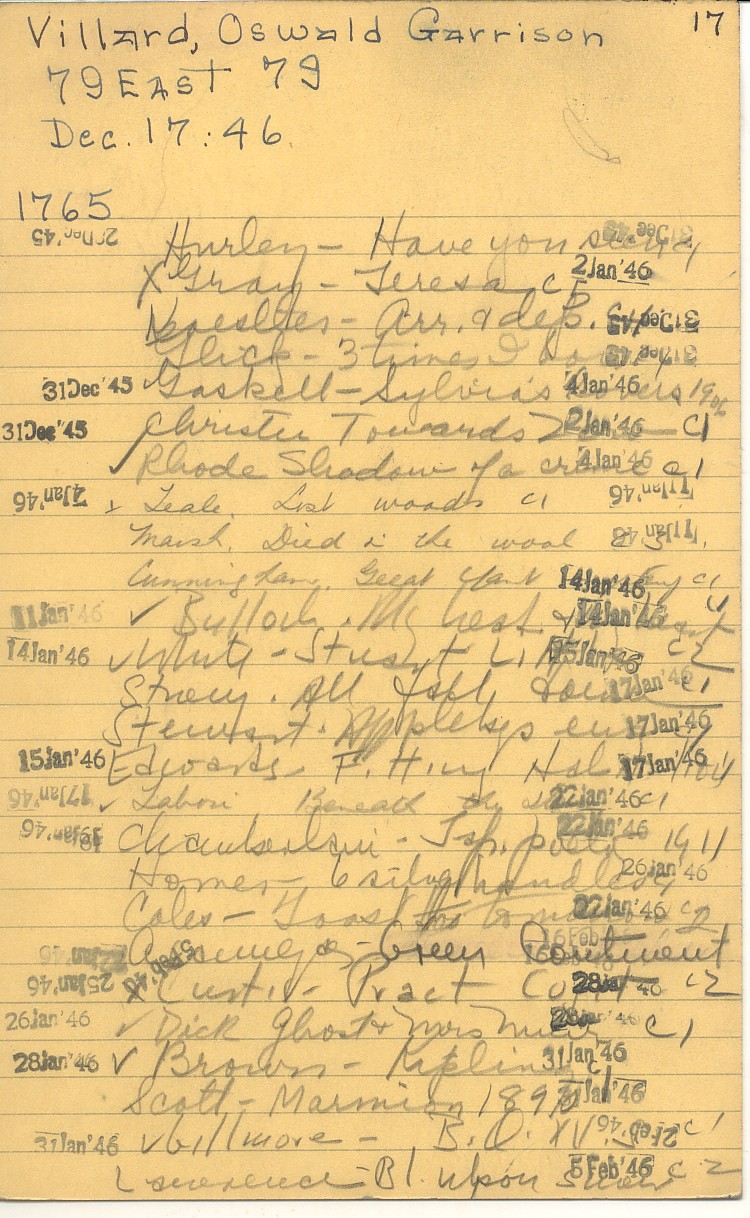 Villard, Oswald Garrison 17
79 East 79
Dec. 17:46
1765
2 Dec '45 Hurley - Have you seen 31 Dec '45
X Gray - Teresa c 2 Jan '46
- Arr. & dep. 31 Dec '45
Glick - 3 times I 31 Dec '45
31 Dec '45 Gaskell - Sylvia's Lovers 4 Jan '46
31 Dec '45 Christie Towards Zero 2 Jan '46 c1
✓ Rhode Shadow of a crime 4 Jan '46 c1
4 Jan '46 x Teale. Lost woods c1 11 Jan '46
Marsh. Died in the wool 11 Jan '46
Cunningham. Great 14 Jan '46 c1
11 Jan '46 ✓ Bulloch. My best 14 Jan '46
14 Jan '46 ✓ White - Stuart Little 15 Jan '46 c2
Strong. All fall down 17 Jan '46 c1
Stewart. 17 Jan '46
15 Jan '46 Edwards F. Hey 17 Jan '46
17 Jan '46 ✓ Labori Beneath the 22 Jan '46 c1
19 Jan '46 Chamberlain - Jap. poetry 22 Jan '46 1911
Homes - 6 silver handles 26 Jan '46
Coles - Toast to tomorrow 22 Jan '46 c2
22 Jan '46 5 Feb '46 - Green Continent 16 Feb '46
25 Jan '46 x Curtis - Pract Cogit 28 Jan '46 c2
26 Jan '46 ✓ Dick Ghost & Mrs Muir 28 Jan '46 c1
28 Jan '46 ✓ Brown - Kipling 31 Jan '46 c1
Scott - Marmion 1890 31 Jan '46
31 Jan '46 ✓ Gillmore - B.Q. XV 2 Feb '46 c1
Lawrence - Bl. upon snow 5 Feb '46 c2